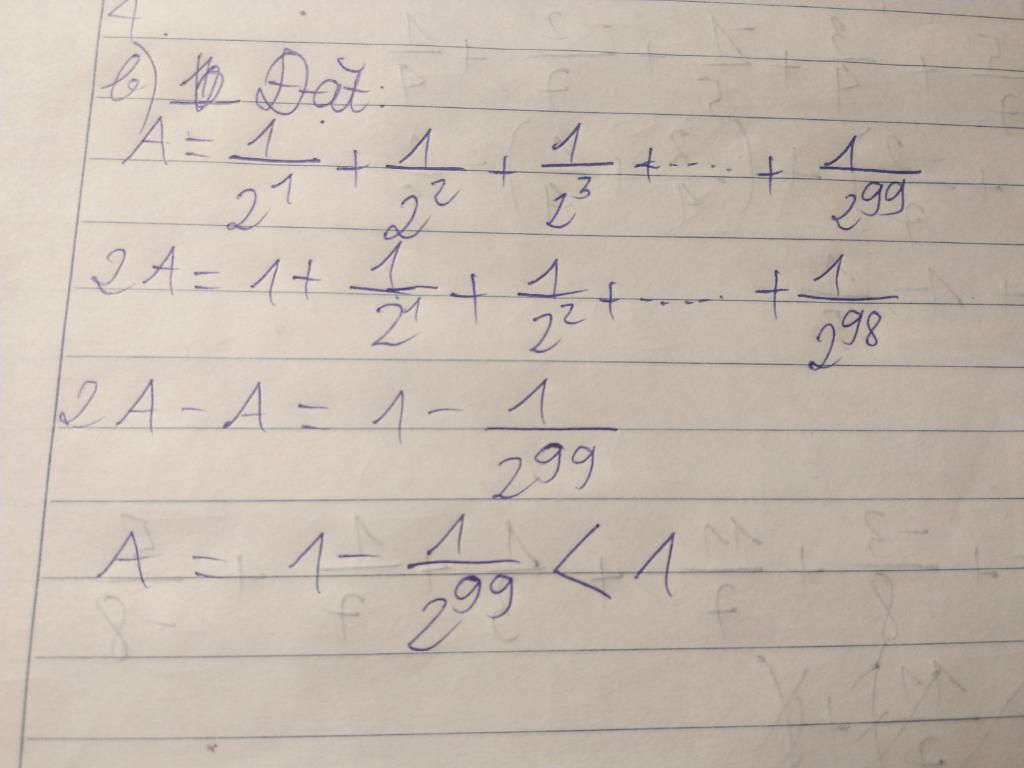 b) Đặt:
A = 1/2^1 + 1/2^2 + 1/2^3 + ..... + 1/2^99
2A = 1 + 1/2^1 + 1/2^2 + ...... + 1/2^98
2A - A = 1 - 1/2^99
A = 1 - 1/2^99 < 1